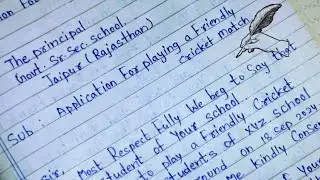 The principal
Govt. Sr. Sec school.
Jaipur (Rajasthan)
Sub : Application For playing a Friendly
Cricket match
Sir,
Most Respect Fully We beg to Say that
student of Your school.
to play a Friendly Cricket
students of xyz. school
ground on 10 sep. 2024
me kindly Conse